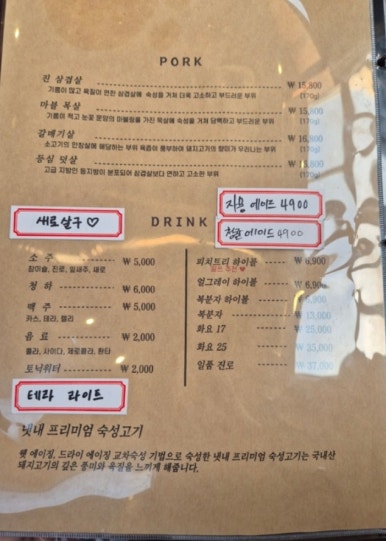 PORK
진 삼겹살 ₩ 15,800
기름이 많고 육질이 연한 삼겹살에 숙성을 거쳐 더욱 고소하고 부드러운 부위 (170g)
마블 목살 ₩ 15,800
기름이 적고 눈꽃 문양의 마블링을 가진 목살에 숙성을 거쳐 담백하고 부드러운 부위 (170g)
갈매기살 ₩ 16,800
소고기의 안창살에 해당하는 부위 육즙이 풍부하여 돼지고기의 향미가 우러나는 부위 (170g)
등심 덧살 ₩
고급 지방인 등지방이 분포되어 삼겹살보다 연하고 고소한 부위 (170g)
새로살구 ♡
DRINK
자몽 에이드 4900
청귤 에이드 4900
소 주 ₩ 5,000
참이슬, 진로, 잎새주, 새로
청 하 ₩ 6,000
맥 주 ₩ 5,000
카스, 테라, 켈리
음 료 ₩ 2,000
콜라, 사이다, 제로콜라, 환타
토닉워터 ₩ 2,000
피치트리 하이볼 ₩ 6,900
얼그레이 하이볼 ₩ 6,900
복분자 하이볼 ₩ 6,900
복분자 ₩ 13,000
화요 17 ₩ 25,900
화요 25 ₩ 35,000
일품 진로 ₩ 37,000
테라 라이트
냇내 프리미엄 숙성고기
웻 에이징, 드라이 에이징 교차숙성 기법으로 숙성한 냇내 프리미엄 숙성고기는 국내산
돼지고기의 깊은 풍미와 육질을 느끼게 해줍니다.